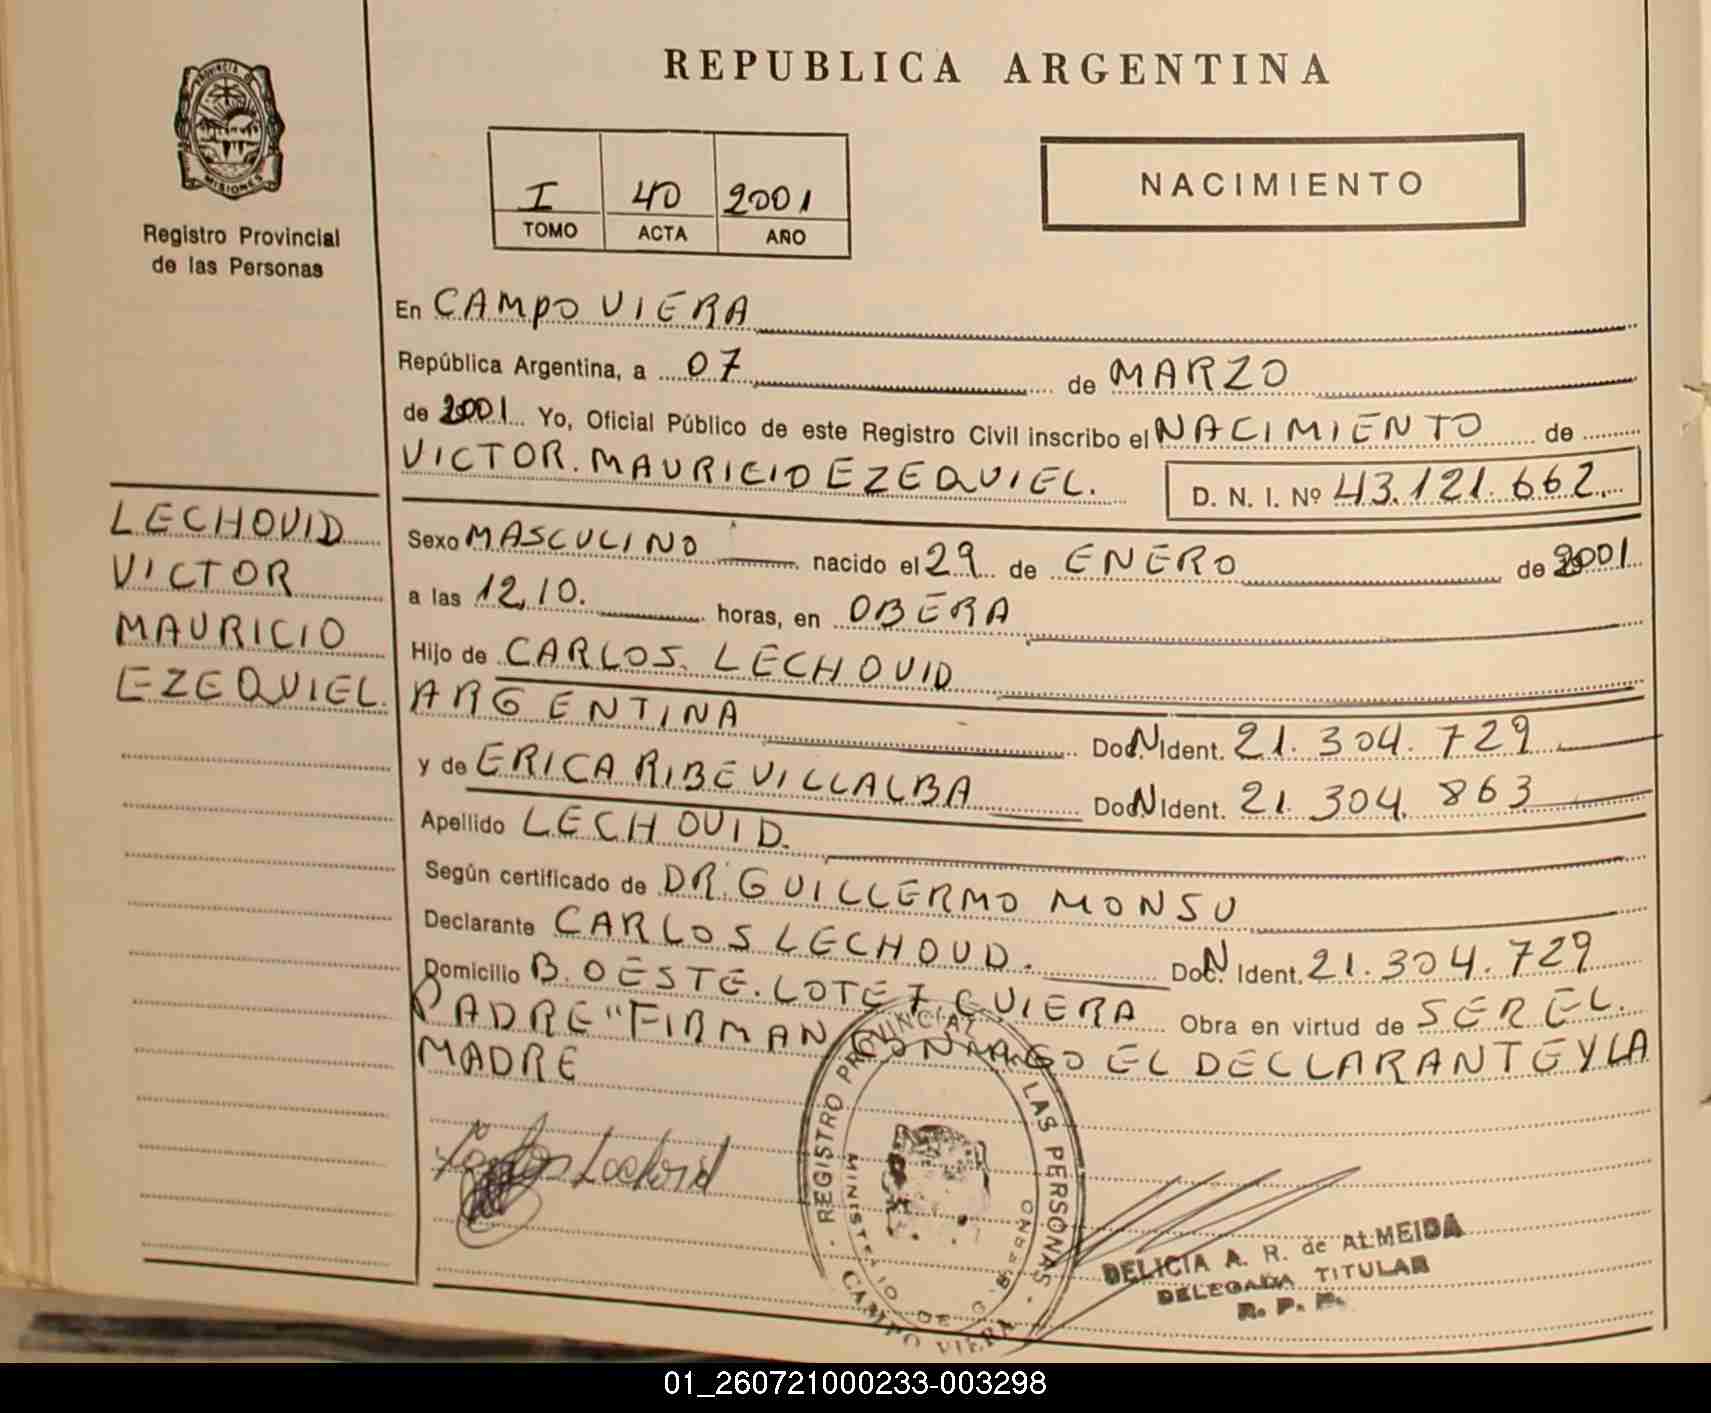 REPUBLICA ARGENTINA
PROVINCIA DE
MISIONES
Registro Provincial
de las Personas
I 40 2001
TOMO ACTA AÑO
NACIMIENTO
En CAMPO VIERA
República Argentina, a 07 de MARZO
de 2001 Yo, Oficial Público de este Registro Civil inscribo el NACIMIENTO de
VICTOR. MAURICIO EZEQUIEL. D. N. I. Nº 43.121.662.
LECHOVID
VICTOR
MAURICIO
EZEQUIEL.
Sexo MASCULINO nacido el 29 de ENERO de 2001
a las 12,10. horas, en OBERA
Hijo de CARLOS. LECHOVID
ARGENTINA Doc. N Ident. 21. 304. 729
y de ERICA RIBE VILLALBA Doc. N Ident. 21. 304. 863
Apellido LECHOVID.
Según certificado de DR. GUILLERMO MONSU
Declarante CARLOS LECHOUD. Doc. N Ident. 21.304.729
Domicilio B. OESTE. LOTE 7 C VIERA Obra en virtud de SER EL.
PADRE "FIRMAN CONMIGO EL DECLARANTE Y LA
MADRE
Carlos Lechovid
REGISTRO PROVINCIAL DE LAS PERSONAS
MINISTERIO DE GOBIERNO
CAMPO VIERA
DELICIA A. R. de ALMEIDA
DELEGADA TITULAR
R. P. P.
01_260721000233-003298